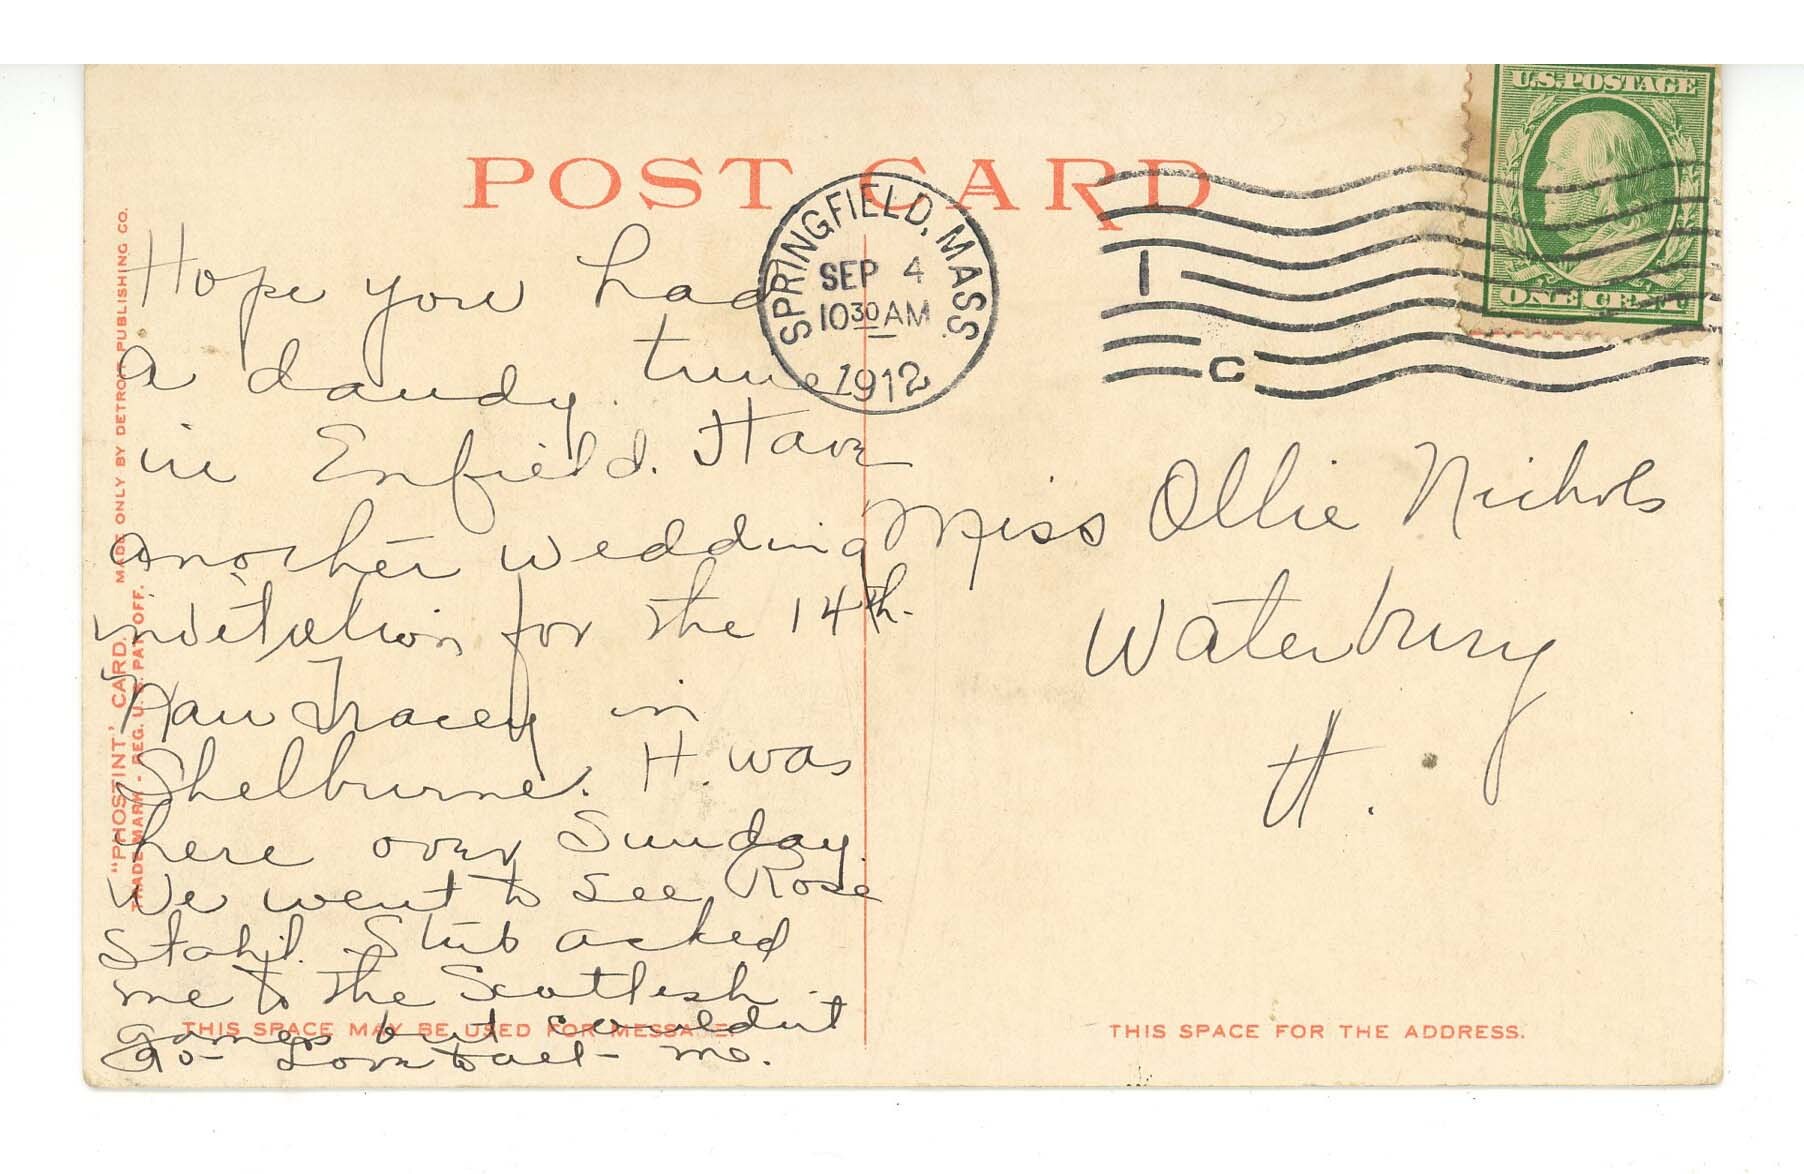 POST CARD
U.S. POSTAGE
ONE CENT
SPRINGFIELD, MASS.
SEP 4
10 30 AM
1912
1
C
Hope you had
a dandy time
in Enfield. Have
another wedding
invitation for the 14th.
Tracey in
Shelburne. H. was
here over Sunday.
We went to see Rose
Stahl. Stub asked
me to the Scottish
games but couldn't
go - Love to all -
Miss Ollie Nichols
Waterbury
Vt.
"PHOSTINT" CARD. MADE ONLY BY DETROIT PUBLISHING CO.
TRADEMARK - REG. U.S. PAT. OFF.
THIS SPACE MAY BE USED FOR MESSAGE.
THIS SPACE FOR THE ADDRESS.